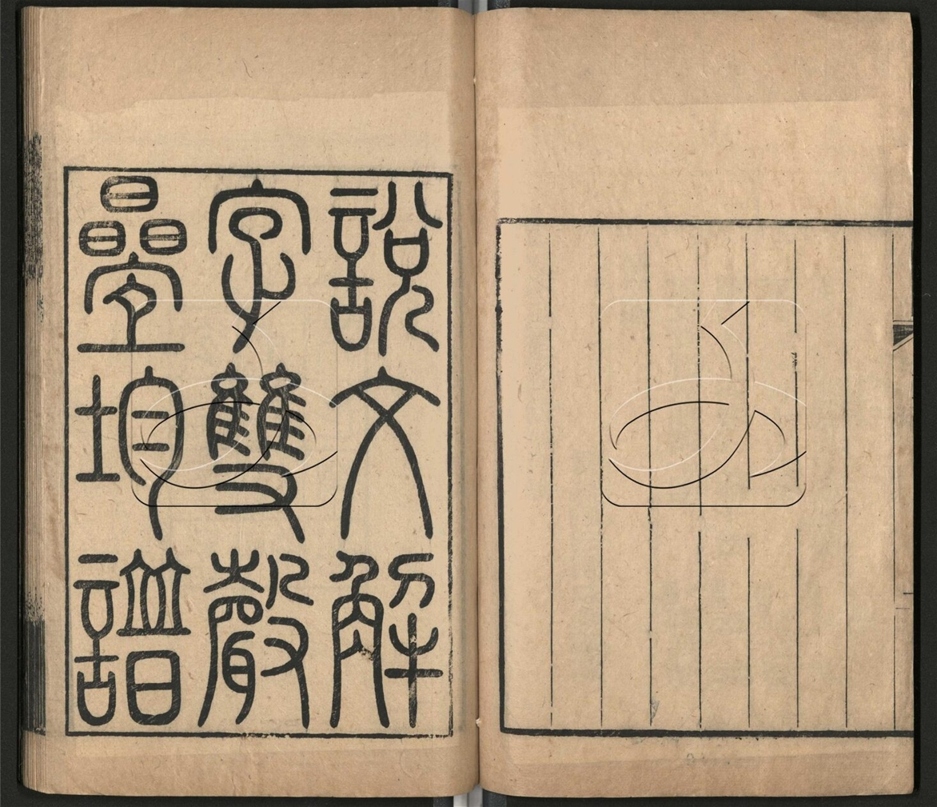 說文解
字雙聲
疊均譜